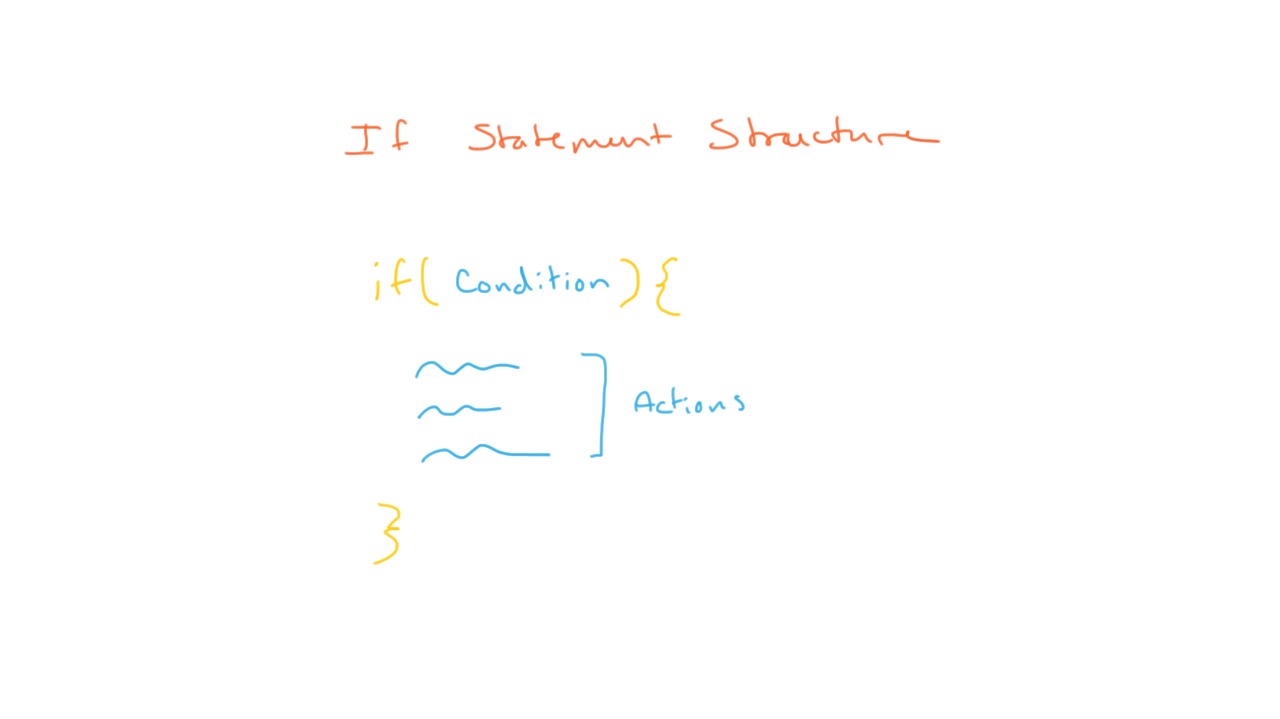 If Statement Structure
if( Condition ){
Actions
}